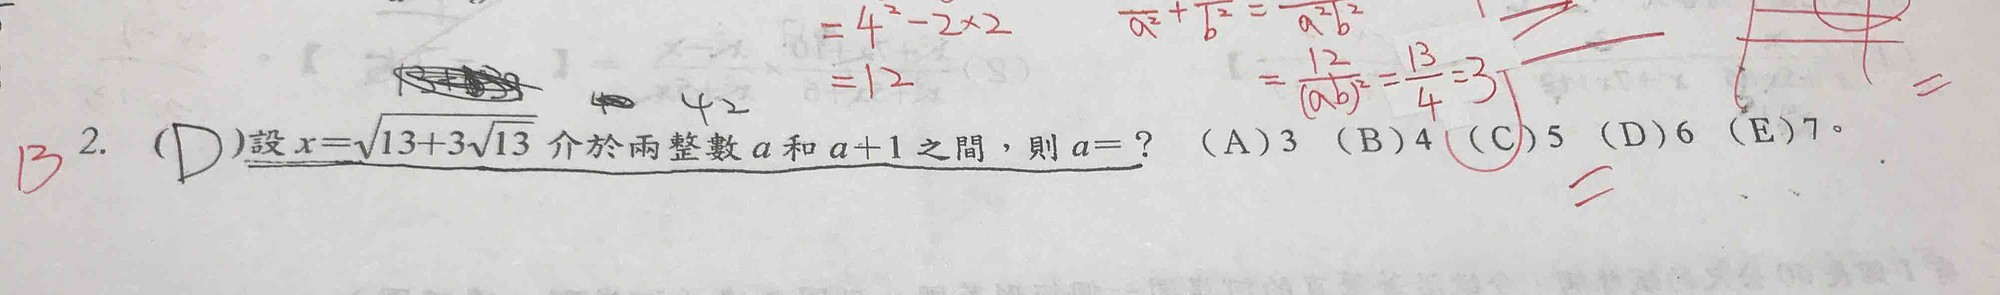 = 4² - 2×2
= 12
a² + b² = a²b²
= 12/(ab)² = 13/4 = 3
42
13 2. (D)設 x=√(13+3√13) 介於兩整數 a 和 a+1 之間，則 a=？ (A)3 (B)4 (C)5 (D)6 (E)7。